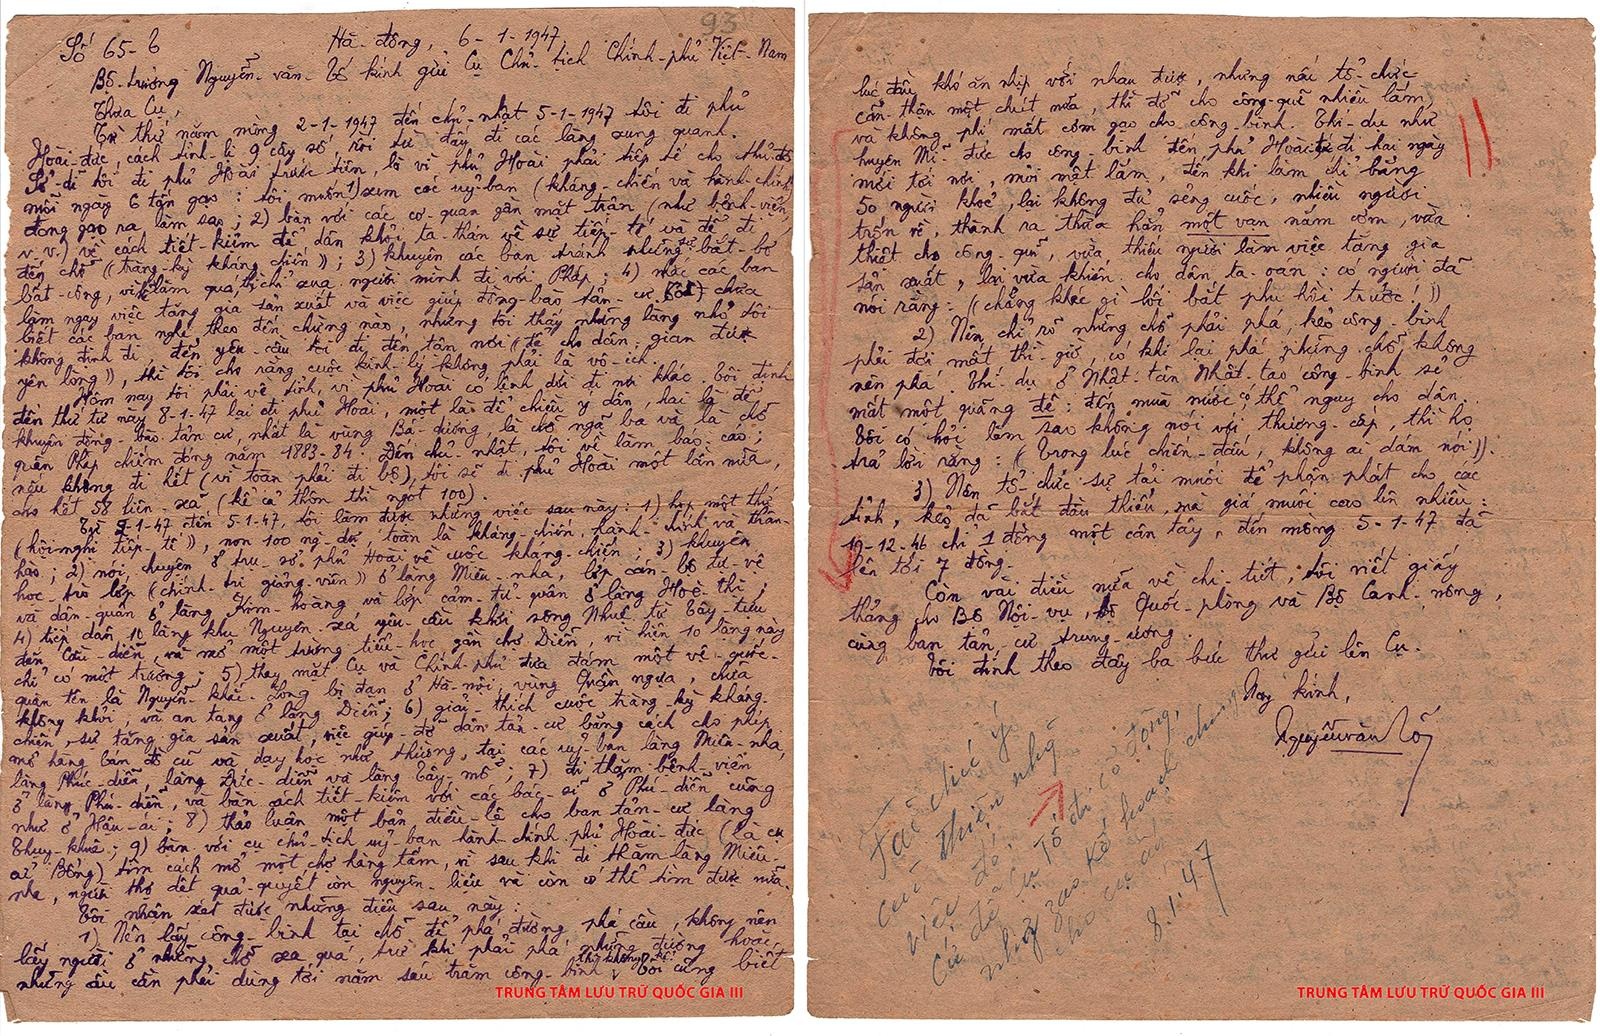 93
Số 65-b Hà-đông, 6-1-1947
Bộ-trưởng Nguyễn-văn-Tố kính gửi Cụ Chủ-tịch Chính-phủ Việt-Nam
Thưa Cụ,
Từ thứ năm mùng 2-1-1947 đến chủ-nhật 5-1-1947 tôi đi phủ
Hoài-đức, cách tỉnh-lị 9 cây số, rồi từ đấy đi các làng xung quanh.
Sở-dĩ tôi đi phủ Hoài trước tiên, là vì phủ Hoài phải tiếp tế cho thủ-đô
mỗi ngày 6 tấn gạo: tôi muốn 1) xem các uỷ-ban (kháng-chiến và hành-chính)
đong gạo ra làm sao; 2) bàn với các cơ-quan gần mặt trận (như bệnh-viện,
v.v.) về cách tiết-kiệm để dân khỏi ta-thán về sự tiếp-tế và để đi
đến chỗ "tràng-kỳ kháng chiến"; 3) khuyên các ban tránh những sự bất-bơ
bất-công, vì làm quá, thì chỉ xua người mình đi với Pháp; 4) các ban
làm ngay việc tăng gia sản xuất và việc giúp đồng-bào tản-cư. Tôi chưa
biết các ban nghe theo đến chừng nào, nhưng tôi thấy những làng nhỏ tôi
không định đi, đến yêu-cầu tôi đi đến tận nơi "để cho dân-gian được
yên lòng", thì tôi cho rằng cuộc kinh-lý không phải là vô-ích.
Hôm nay tôi phải về tỉnh, vì phủ Hoài có lệnh dời đi nơi khác. Tôi định
đến thứ tư này 8-1-47 lại đi phủ Hoài, một là để chiều ý dân, hai là để
khuyên đồng-bào tản cư, nhất là vùng Bá-dương, là chỗ ngã ba và là chỗ
quân Pháp chiếm đóng năm 1883-84. Đến chủ-nhật, tôi về làm báo-cáo;
nếu không đi hết (vì toàn phải đi bộ), tôi sẽ đi phủ Hoài một lần nữa,
cho hết 58 liên-xã (kể cả thôn thì ngót 100).
Từ 2-1-47 đến 5-1-47, tôi làm được những việc sau này: 1) họp một thứ
"hội-nghị tiếp-tế", non 100 ng. dự, toàn là kháng-chiến, hành-chính và thân-
hào; 2) nói chuyện ở trụ-sở phủ Hoài về cuộc kháng-chiến; 3) khuyên
học-trò lớp "chính-trị giảng-viên" ở làng Miêu-nha, lớp cán-bộ tự-vệ
và dân-quân ở làng Kim-hoàng và lớp cảm-tử-quân ở làng Hoè-thị;
4) tiếp dân 10 làng khu Nguyên-xá yêu-cầu khơi sông Nhuệ từ Tây-tựu
đến Cầu-diễn, và mở một trường tiểu-học gần chợ Diễn, vì hiện 10 làng này
chỉ có một trường; 5) thay mặt Cụ và Chính-phủ đưa đám một vệ-quốc-
quân tên là Nguyễn-khắc-Hồng bị đạn ở Hà-nội, vùng Quần ngựa, chữa
không khỏi, và an táng ở làng Diễn; 6) giải-thích cuộc tràng-kỳ kháng-
chiến, sự tăng gia sản xuất, việc giúp-đỡ dân tản-cư bằng cách cho phép
mở hàng bán đồ cũ và dạy học như thường, tại các uỷ-ban làng Miêu-nha,
làng Phúc-diễn, làng Đức-diễn và làng Tây-mỗ; 7) đi thăm bệnh-viện
ở làng Phú-diễn, và bàn cách tiết-kiệm với các bác-sĩ ở Phú-diễn cũng
như ở Hậu-ái; 8) thảo luận một bản điều-lệ cho ban tản-cư làng
Thuỵ-khuê; 9) bàn với cụ chủ-tịch uỷ-ban hành-chính phủ Hoài-đức (là cụ
Bổng) tìm cách mở một chợ hàng tấm, vì sau khi đi thăm làng Miêu-
nha, người thợ dệt quả-quyết còn nguyên-liệu và còn có thể tìm được nữa.
Tôi nhận xét được những điều sau này:
1) Nên lấy công-binh tại chỗ để phá đường phá cầu, không nên
lấy người ở những chỗ xa quá, trừ khi phải phá những đường hoặc
những cầu cần phải dùng tới năm sáu trăm công-binh thì không kể. Tôi cũng biết
lúc đầu khó ăn nhịp với nhau được, nhưng nếu tổ-chức
cẩn-thận một chút nữa, thì đỡ cho công-quĩ nhiều lắm,
và không phí mất cơm gạo cho công-binh. Thí-dụ như
huyện Mĩ-đức cho công-binh đến phủ Hoài đi hai ngày
mới tới nơi, mỏi mệt lắm, đến khi làm chỉ bằng
50 người khoẻ, lại không đủ sẻng cuốc, nhiều người
trốn về, thành ra thừa hẳn một vạn nắm cơm, vừa
thiệt cho công-quĩ, vừa thiếu người làm việc tăng gia
sản xuất, lại vừa khiến cho dân ta-oán: có người đã
nói rằng: "chẳng khác gì lối bắt phu hồi trước!"
2) Nên chỉ rõ những chỗ phải phá, kẻo công-binh
phải đợi mất thì-giờ, có khi lại phá những chỗ không
nên phá. Thí dụ ở Nhật-tân Nhật-tảo công-binh sẻ
mất một quãng đê: đến mùa nước có thể nguy cho dân.
Tôi có hỏi làm sao không nói với thượng-cấp, thì họ
trả lời rằng: "Trong lúc chiến-đấu, không ai dám nói".
3) Nên tổ-chức sự tải muối để phân phát cho các
tỉnh, kẻo đã bắt đầu thiếu, mà giá muối cao lên nhiều:
19-12-46 chỉ 1 đồng một cân tây, đến mồng 5-1-47 đã
lên tới 7 đồng.
Còn vài điều nữa về chi-tiết, tôi viết giấy
thẳng cho Bộ Nội-vụ, bộ Quốc-phòng và Bộ Canh-nông,
cùng ban tản cư trung-ương.
Tôi đính theo đây ba bức thư gửi lên Cụ.
Nay kính,
Nguyễn văn Tố
chú ý
cải thiện
việc đó.
Cứ để Cụ Tố đi cổ động,
kế hoạch chung
cho cụ ấy
8.1.47
TRUNG TÂM LƯU TRỮ QUỐC GIA III
TRUNG TÂM LƯU TRỮ QUỐC GIA III